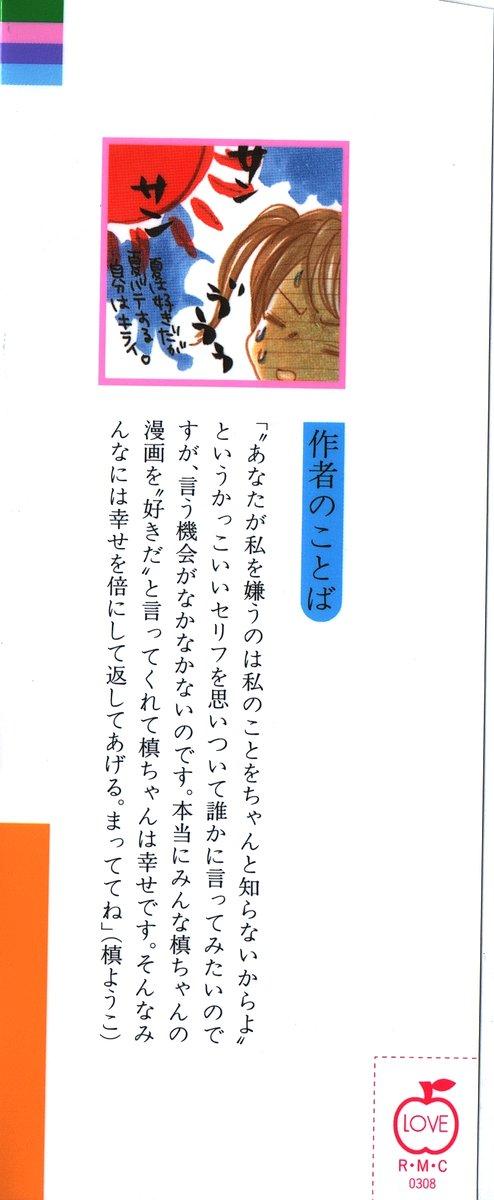 サン
サン
夏は好きだが
夏バテする
自分はキライ。
ううう
作者のことば
「〝あなたが私を嫌うのは私のことをちゃんと知らないからよ〟
というかっこいいセリフを思いついて誰かに言ってみたいので
すが、言う機会がなかなかないのです。本当にみんな槙ちゃんの
漫画を〝好きだ〟と言ってくれて槙ちゃんは幸せです。そんなみ
んなには幸せを倍にして返してあげる。まっててね」(槙ようこ)
LOVE
R・M・C
0308